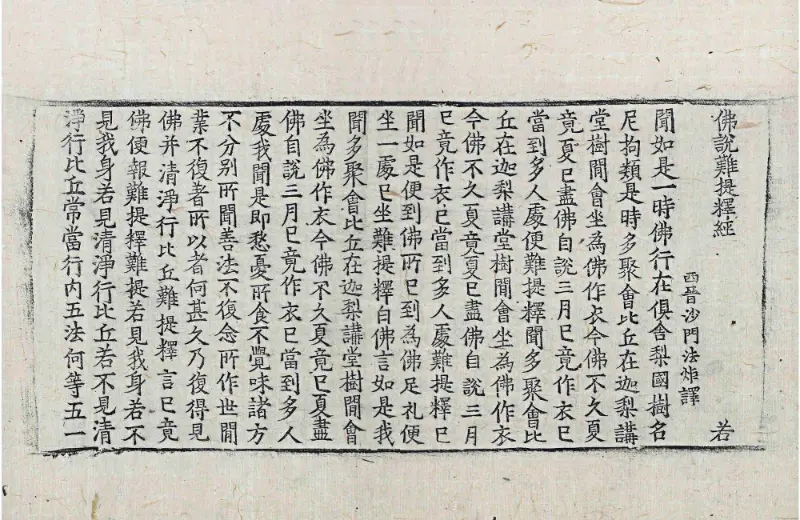 佛說難提釋經
若
西晉沙門法炬譯
聞如是一時佛行在俱舍梨國樹名
尼拘類是時多聚會比丘在迦梨講
堂樹閒會坐為佛作衣今佛不久夏
竟夏已盡佛自說三月已竟作衣已
當到多人處便難提釋聞多聚會比
丘在迦梨講堂樹閒會坐為佛作衣
今佛不久夏竟夏已盡佛自說三月
已竟作衣已當到多人處難提釋已
聞如是便到佛所已到為佛足礼便
坐一處已坐難提釋白佛言如是我
聞多聚會比丘在迦梨講堂樹閒會
坐為佛作衣今佛不久夏竟已夏盡
佛自說三月已竟作衣已當到多人
處我聞是即愁憂所食不覺味諸方
不分別所聞善法不復念所作世閒
業不復者所以者何甚久乃復得見
佛并清淨行比丘難提釋言已竟
佛便報難提釋難提若見我身若不
見我身若見清淨行比丘若不見清
淨行比丘常當行内五法何等五一